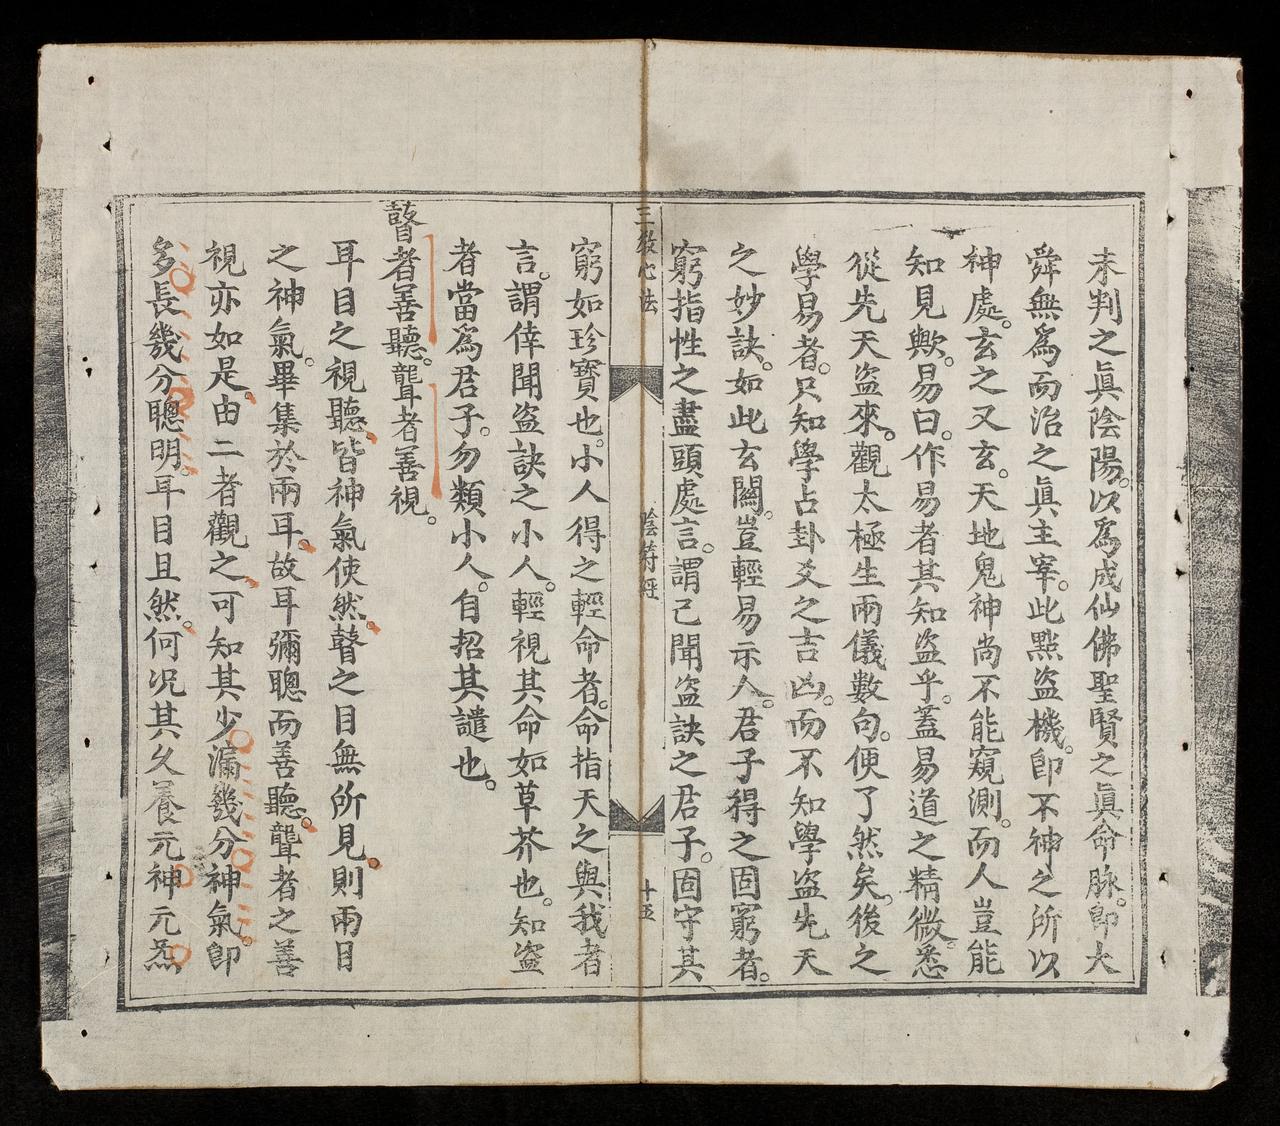 未判之眞陰陽。以爲成仙佛聖賢之眞命脉。卽大
舜無爲而治之眞主宰。此點盜機。卽不神之所以
神處。玄之又玄。天地鬼神尙不能窺測。而人豈能
知見歟。易曰。作易者其知盜乎。蓋易道之精微。悉
從先天盜來。觀太極生兩儀數句。便了然矣。後之
學易者。只知學占卦爻之吉凶。而不知學盜先天
之妙訣。如此玄關。豈輕易示人。君子得之固窮者。
窮指性之盡頭處言。謂已聞盜訣之君子。固守其
三教心法
陰符經
十五
窮如珍寶也。小人得之輕命者。命指天之與我者
言。謂倖聞盜訣之小人。輕視其命如草芥也。知盜
者當爲君子。勿類小人。自招其譴也。
瞽者善聽。聾者善視。
耳目之視聽。皆神氣使然。瞽之目無所見。則兩目
之神氣。畢集於兩耳。故耳彌聰而善聽。聾者之善
視亦如是。由二者觀之。可知其少漏幾分神氣。卽
多長幾分聰明。耳目且然。何况其久養元神元炁